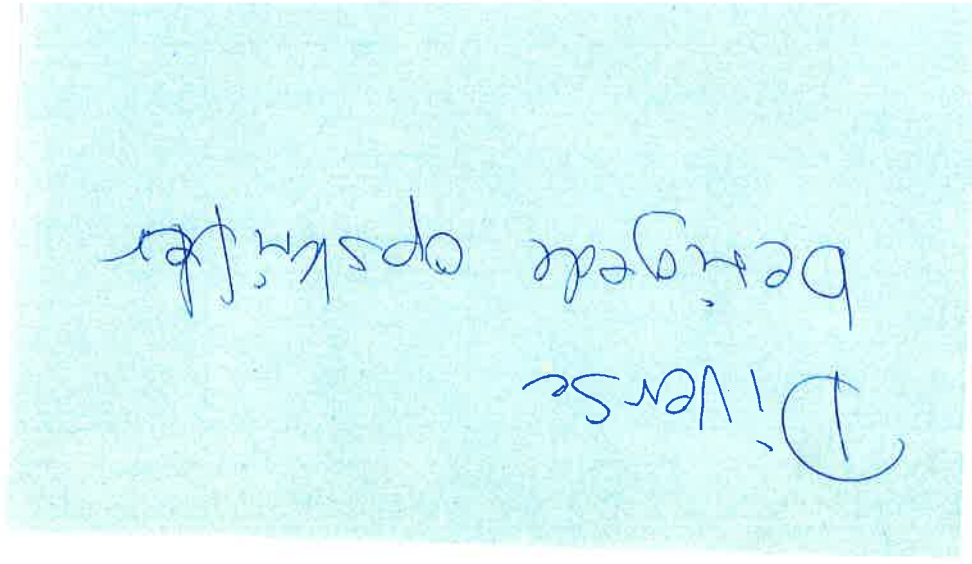 Diverse
benigede opskrifter